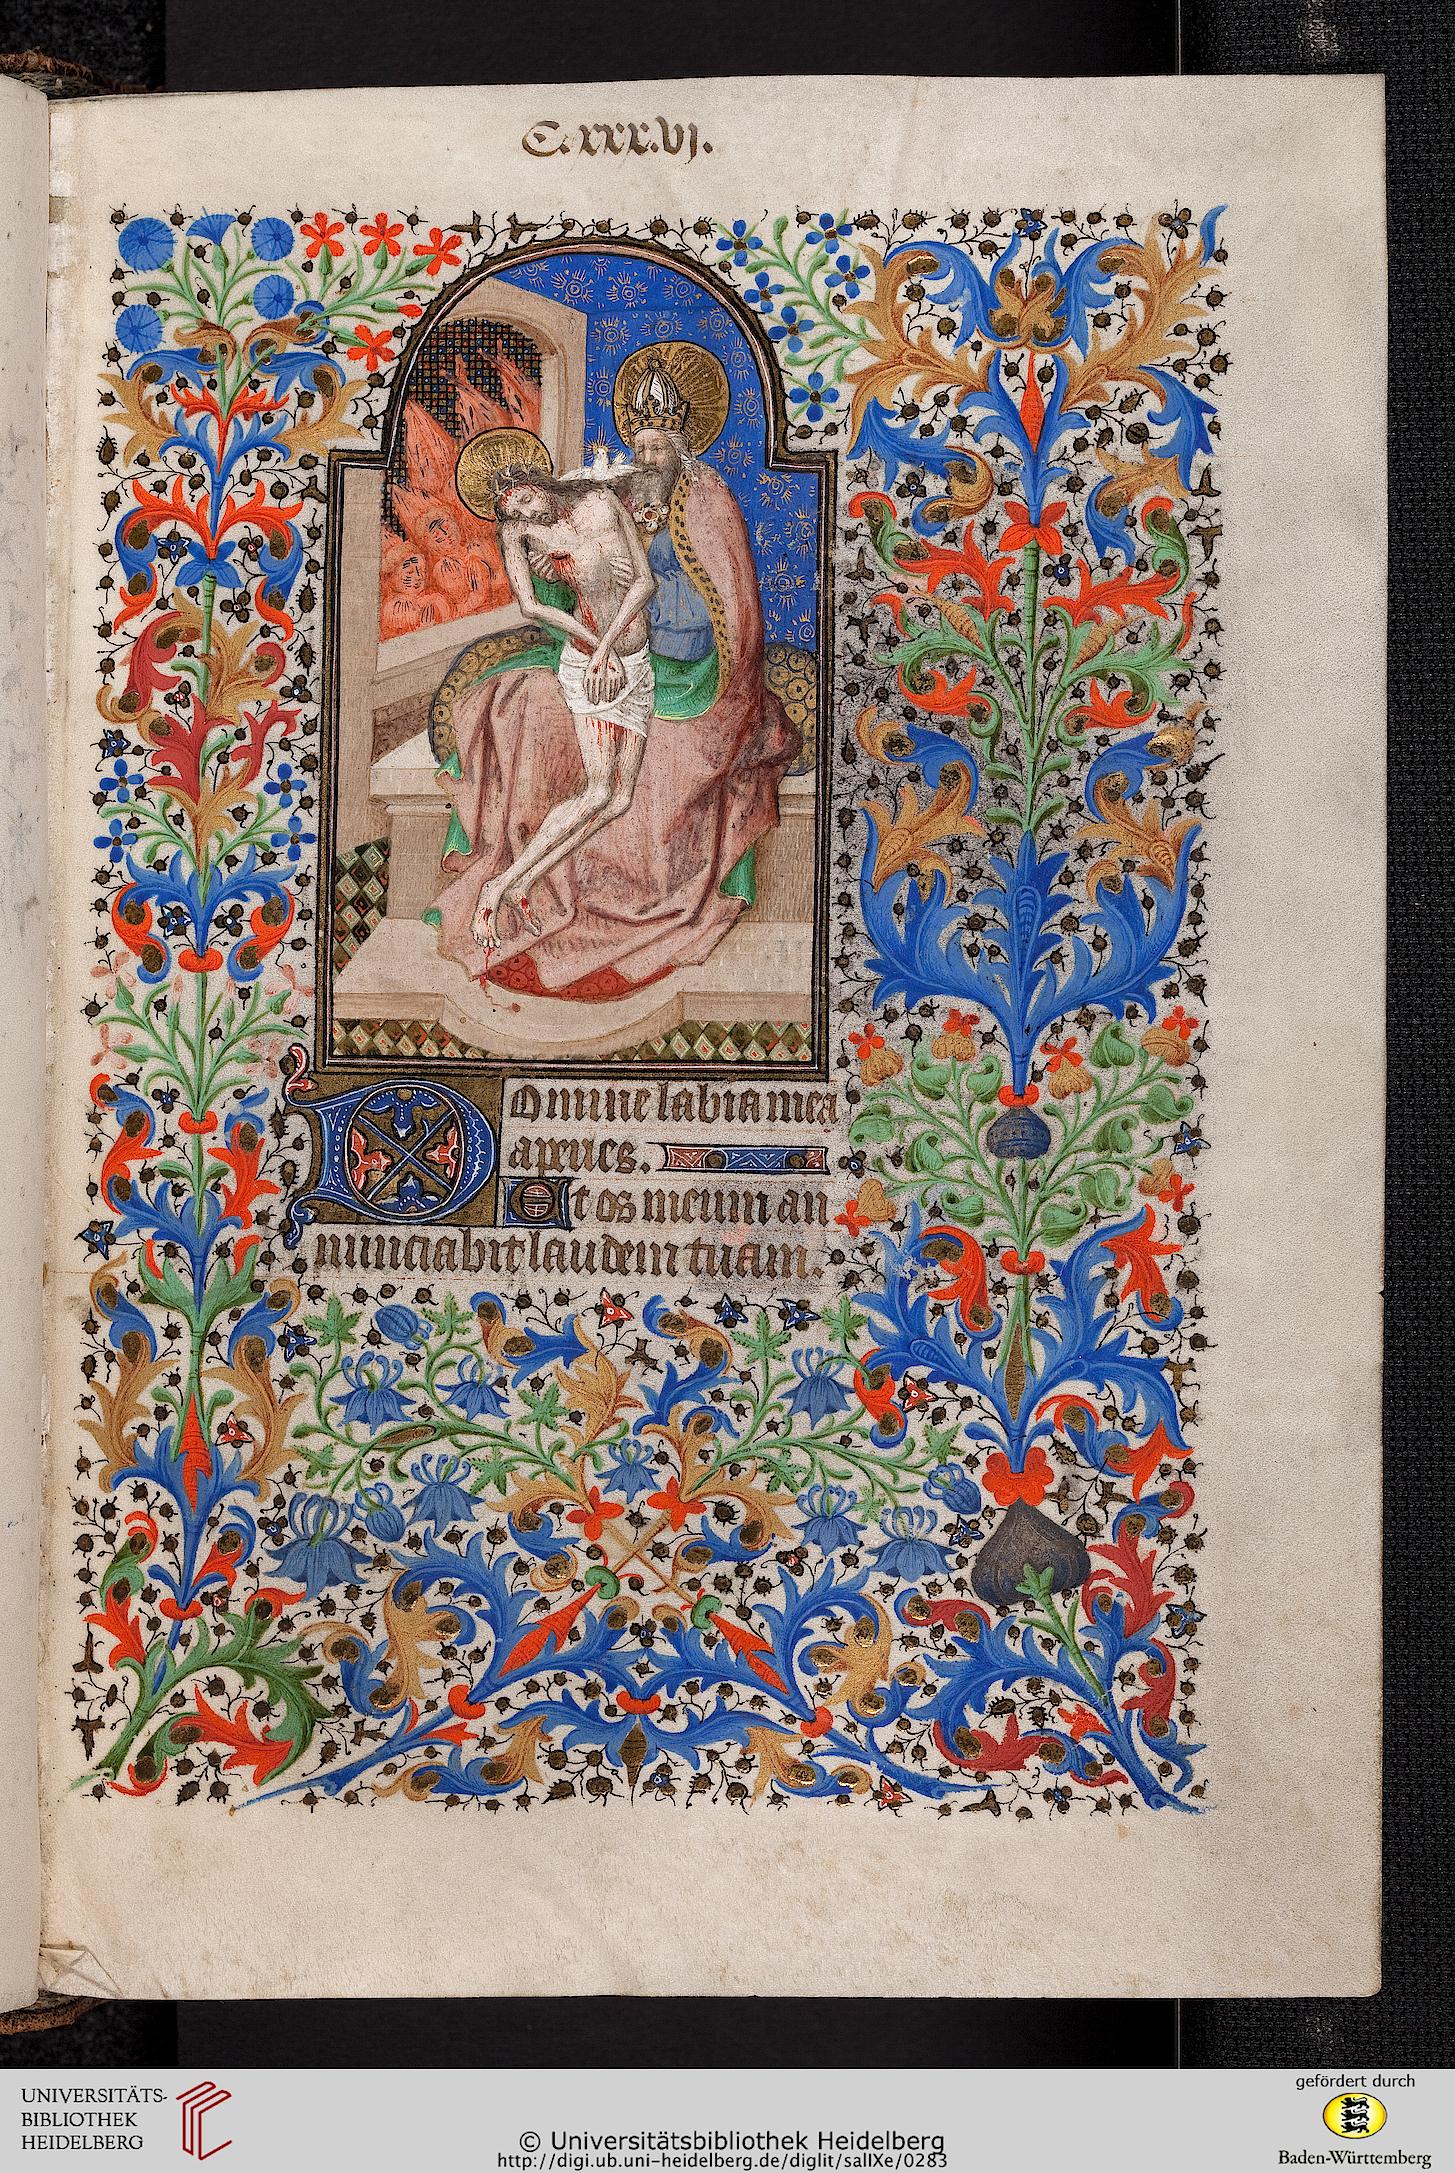 C.xxx.vj.
Domine labia mea
aperies.
Et os meum an
nunciabit laudem tuam.
UNIVERSITÄTS-
BIBLIOTHEK
HEIDELBERG
© Universitätsbibliothek Heidelberg
http://digi.ub.uni-heidelberg.de/diglit/salIXe/0283
gefördert durch
Baden-Württemberg